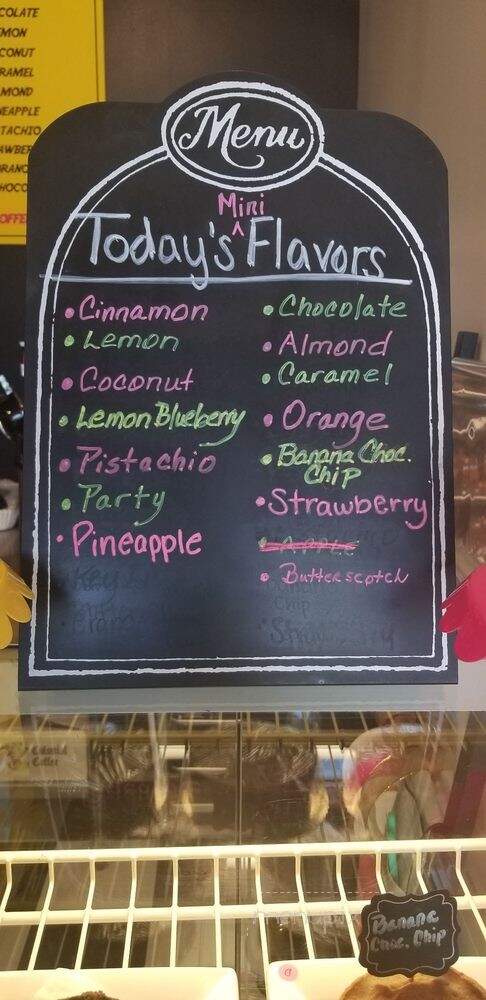 COLATE
MON
CONUT
RAMEL
MOND
NEAPPLE
TACHIO
AWBER
ORANG
HOCO
OFFE
Menu
Mini
Today's ^ Flavors
• Cinnamon
• Lemon
• Coconut
• Lemon Blueberry
• Pistachio
• Party
• Pineapple
• Chocolate
• Almond
• Caramel
• Orange
• Banana Choc.
Chip
• Strawberry
• Apple
• Butterscotch
Key
Chip
• Strawberry
Banana
Choc. Chip